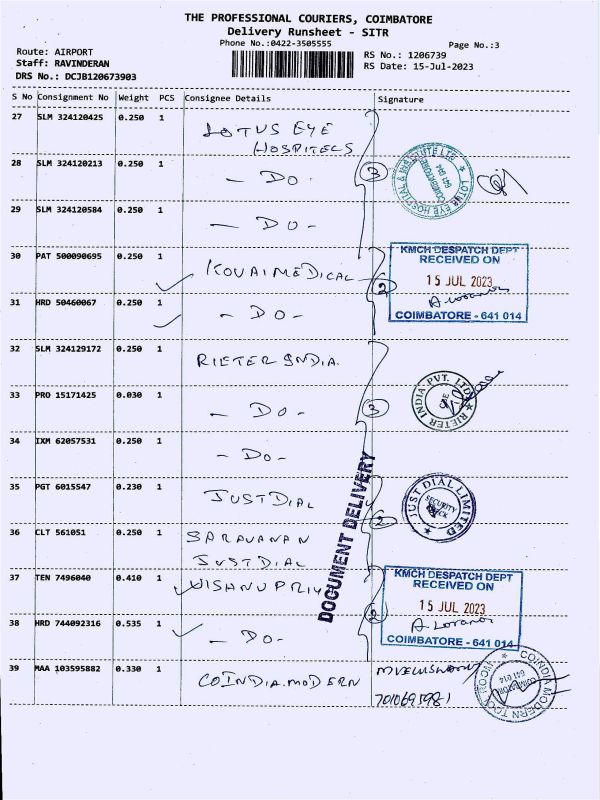 THE PROFESSIONAL COURIERS, COIMBATORE
Delivery Runsheet - SITR
Phone No.:0422-3505555
Page No.:3
Route: AIRPORT
Staff: RAVINDERAN
DRS No.: DCJB120673903
RS No.: 1206739
RS Date: 15-Jul-2023
S No Consignment No Weight PCS Consignee Details Signature
27 SLM 324120425 0.250 1 LOTUS EYE
HOSPITELS
28 SLM 324120213 0.250 1 - DO - 3
LOTUS EYE HOSPITAL & INSTITUTE LTD COIMBATORE 641 014
29 SLM 324120584 0.250 1 - DO -
30 PAT 500090695 0.250 1 KOVAI MEDICAL 2
KMCH DESPATCH DEPT
RECEIVED ON
15 JUL 2023
COIMBATORE - 641 014
31 HRD 50460067 0.250 1 - DO -
32 SLM 324129172 0.250 1 RIETER INDIA.
33 PRO 15171425 0.030 1 - DO - 3
RIETER INDIA PVT. LTD. CBE
34 IXM 62057531 0.250 1 - DO -
35 PGT 6015547 0.230 1 JUST DIAL 2
JUST DIAL LIMITED SECURITY CHECK
36 CLT 561051 0.250 1 SARAVANAN
JUST DIAL
DOCUMENT DELIVERY
37 TEN 7496040 0.410 1 VISHNU PRIY
KMCH DESPATCH DEPT
RECEIVED ON
15 JUL 2023
COIMBATORE - 641 014
38 HRD 744092316 0.535 1 - DO - 2
39 MAA 103595882 0.330 1 COINDIA.MODERN
COINDIA MODERN TOOL ROOM COIMBATORE 641 014